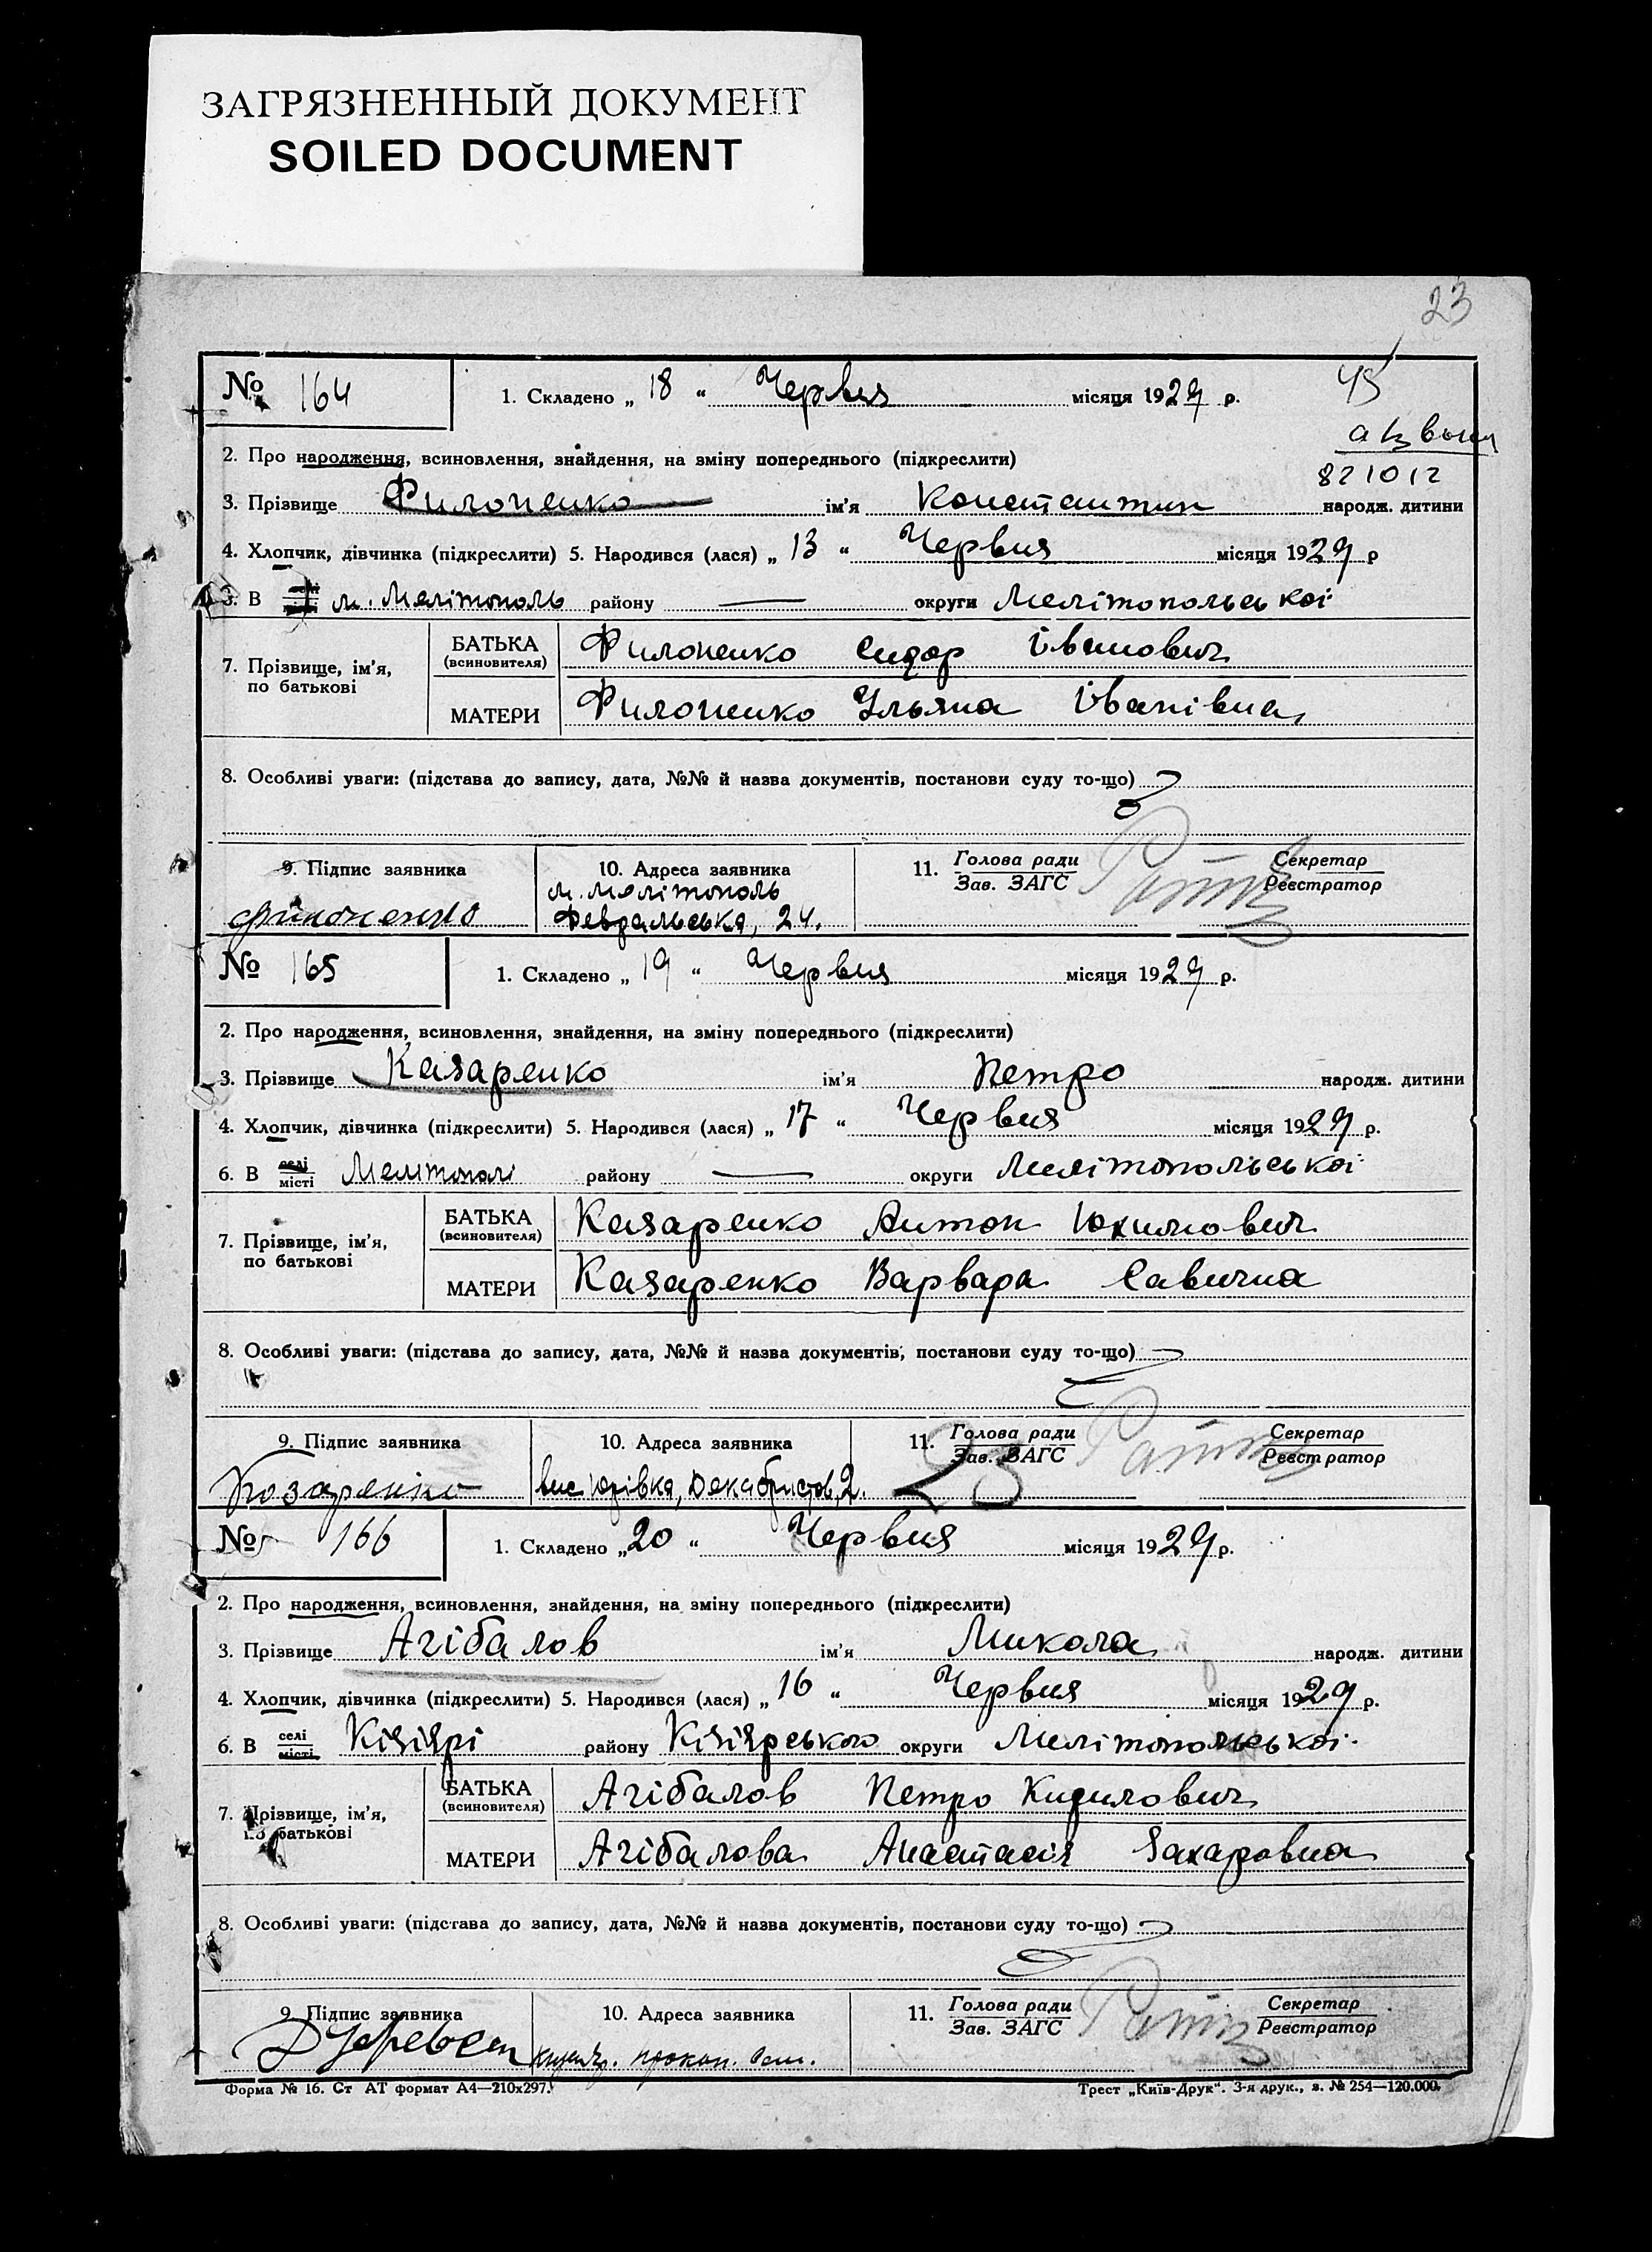 ЗАГРЯЗНЕННЫЙ ДОКУМЕНТ
SOILED DOCUMENT
23
№ 164 1. Складено „ 18 “ Червня місяця 1929 р. 45
2. Про народження, всиновлення, знайдення, на зміну попереднього (підкреслити)
821012
3. Прізвище Филоненко ім'я Константин народж. дитини
4. Хлопчик, дівчинка (підкреслити) 5. Народився (лася) „ 13 “ Червня місяця 1929 р
В м. Мелітополь району — округи Мелітопольської
7. Прізвище, ім'я, по батькові
БАТЬКА (всиновителя) Филоненко Сидор Іванович
МАТЕРИ Филоненко Ульяна Іванівна
8. Особливі уваги: (підстава до запису, дата, №№ й назва документів, постанови суду то-що)
9. Підпис заявника 10. Адреса заявника 11. Голова ради Секретар
Зав. ЗАГС Реєстратор
м. Мелітополь
Филоненко Февральська, 24.
№ 165 1. Складено „ 19 “ Червня місяця 1929 р.
2. Про народження, всиновлення, знайдення, на зміну попереднього (підкреслити)
3. Прізвище Казаренко ім'я Петро народж. дитини
4. Хлопчик, дівчинка (підкреслити) 5. Народився (лася) „ 17 “ Червня місяця 1929 р.
6. В селі місті Мелітополі району — округи Мелітопольської
7. Прізвище, ім'я, по батькові
БАТЬКА (всиновителя) Казаренко Антон Юхимович
МАТЕРИ Казаренко Варвара Савична
8. Особливі уваги: (підстава до запису, дата, №№ й назва документів, постанови суду то-що)
9. Підпис заявника 10. Адреса заявника 11. Голова ради Секретар
Зав. ЗАГС Реєстратор
Козаренко вис Юрівка, Декабристов, 2. 23
№ 166 1. Складено „ 20 “ Червня місяця 1929 р.
2. Про народження, всиновлення, знайдення, на зміну попереднього (підкреслити)
3. Прізвище Агібалов ім'я Микола народж. дитини
4. Хлопчик, дівчинка (підкреслити) 5. Народився (лася) „ 16 “ Червня місяця 1929 р.
6. В селі місті Кізіярі району Кізіярського округи Мелітопольської
7. Прізвище, ім'я, по батькові
БАТЬКА (всиновителя) Агібалов Петро Кирилович
МАТЕРИ Агібалова Анастасія Захаровна
8. Особливі уваги: (підстава до запису, дата, №№ й назва документів, постанови суду то-що)
9. Підпис заявника 10. Адреса заявника 11. Голова ради Секретар
Зав. ЗАГС Реєстратор
Форма № 16. Ст АТ формат А4—210х297. Трест „Київ-Друк“. 3-я друк., з. № 254—120.000.